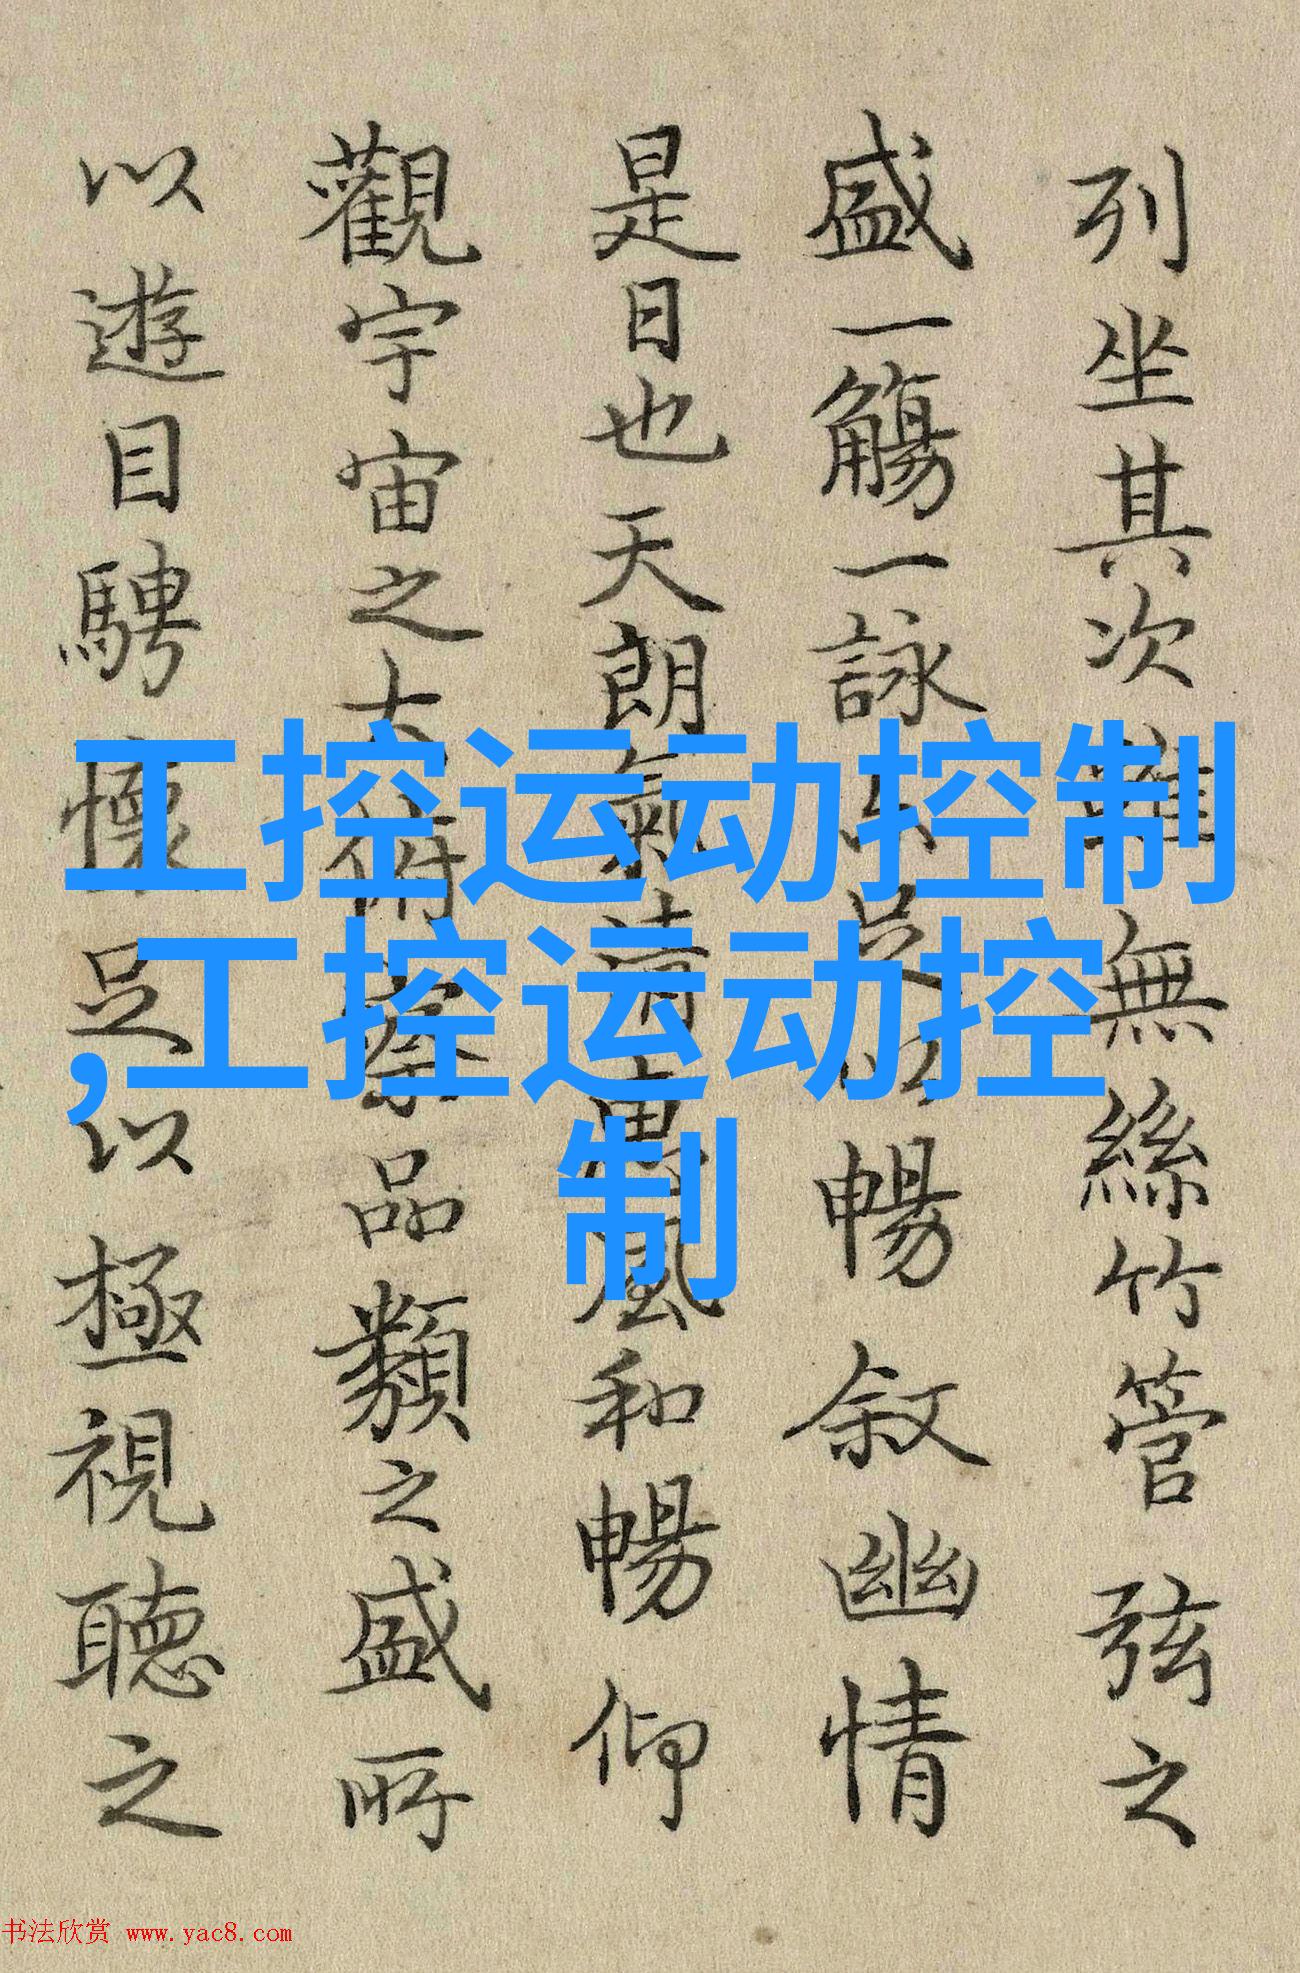 列坐其次雖無絲竹管弦之
盛一觴一詠足以暢叙幽情
是日也天朗氣清惠風和暢仰
觀宇宙之大俯察品類之盛所
以遊目騁懷足以極視聽之
工控运动控制
,工控运动控
制
书法欣赏 www.yac8.com